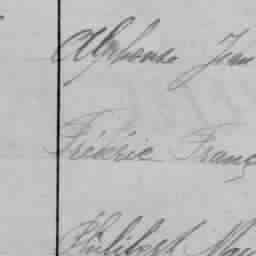 Alphonse Jean
Frédéric Franç
Philibert Mar